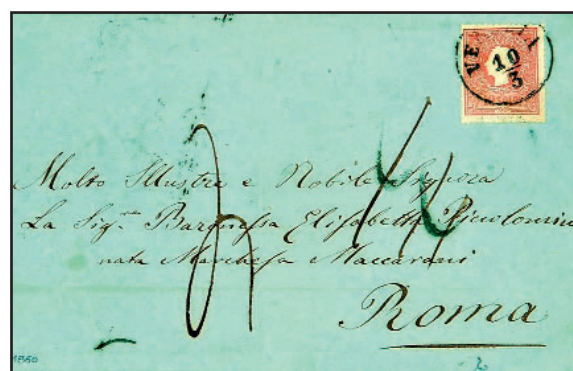 10
3
Molto Illustre e Nobile Signora
La Sig.ra Baronessa Elisabetta Piccolomini
nata Marchesa Maccarani
Roma
1860